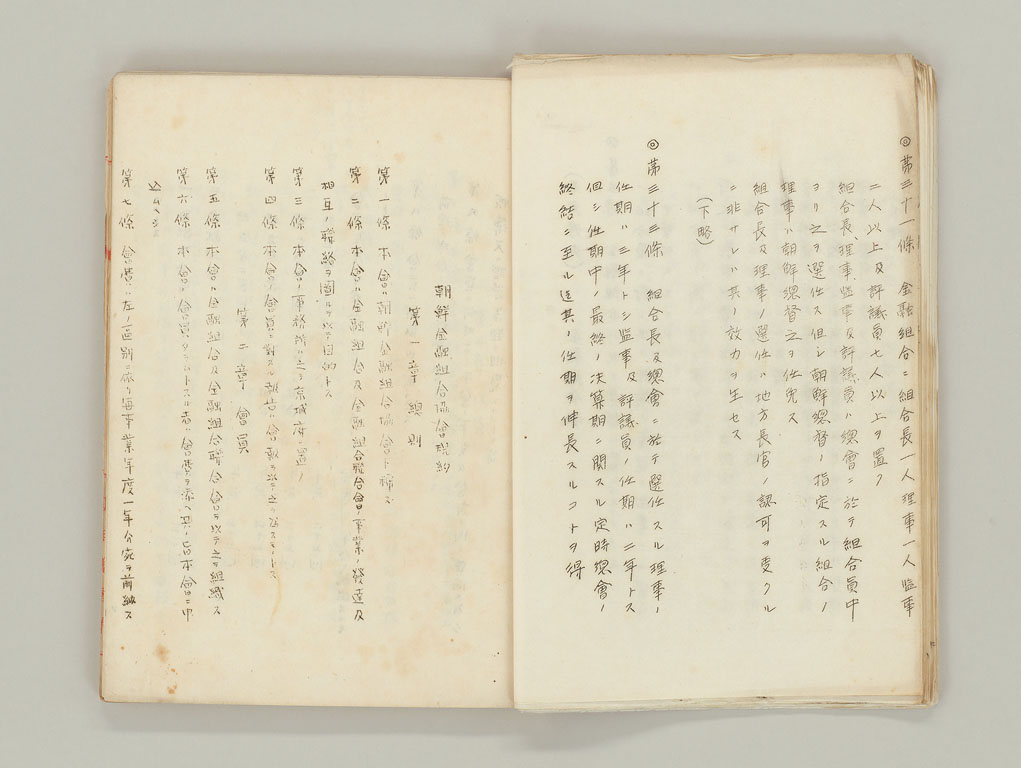 ◎第三十一條　金融組合ニ組合長一人理事一人監事
二人以上及評議員七人以上ヲ置ク
組合長、理事監事及評議員ハ總會ニ於テ組合員中
ヨリ之ヲ選任ス但シ朝鮮總督ノ指定スル組合ノ
理事ハ朝鮮總督之ヲ任免ス
組合長及理事ノ選任ハ地方長官ノ認可ヲ受クル
ニ非サレハ其ノ效力ヲ生セス
（下略）
◎第三十三條　組合長及總會ニ於テ選任スル理事ノ
任期ハ三年トシ監事及評議員ノ任期ハ二年トス
但シ任期中ノ最終ノ決算期ニ關スル定時總會ノ
終結ニ至ル迄其ノ任期ヲ伸長スルコトヲ得
朝鮮金融組合協會規約
第一章 總則
第一條 本會ハ朝鮮金融組合協會ト稱ス
第二條 本會ハ金融組合及金融組合聯合會ノ事業ノ發達及
相互ノ聯絡ヲ圖ルヲ以テ目的トス
第三條 本會ノ事務所ハ之ヲ京城府ニ置ク
第四條 本會ノ會員ニ對スル報告ハ會報ヲ以テ之ヲ為スモノトス
第二章 會員
第五條 本會ハ金融組合及金融組合聯合會ヲ以テ之ヲ組織ス
第六條 本會ノ會員タラントスル者ハ會費ヲ添ヘ其ノ旨本會ニ申
込ムヘシ
第七條 會費ハ左ノ區別ニ依リ每事業年度一年分宛ヲ前納ス